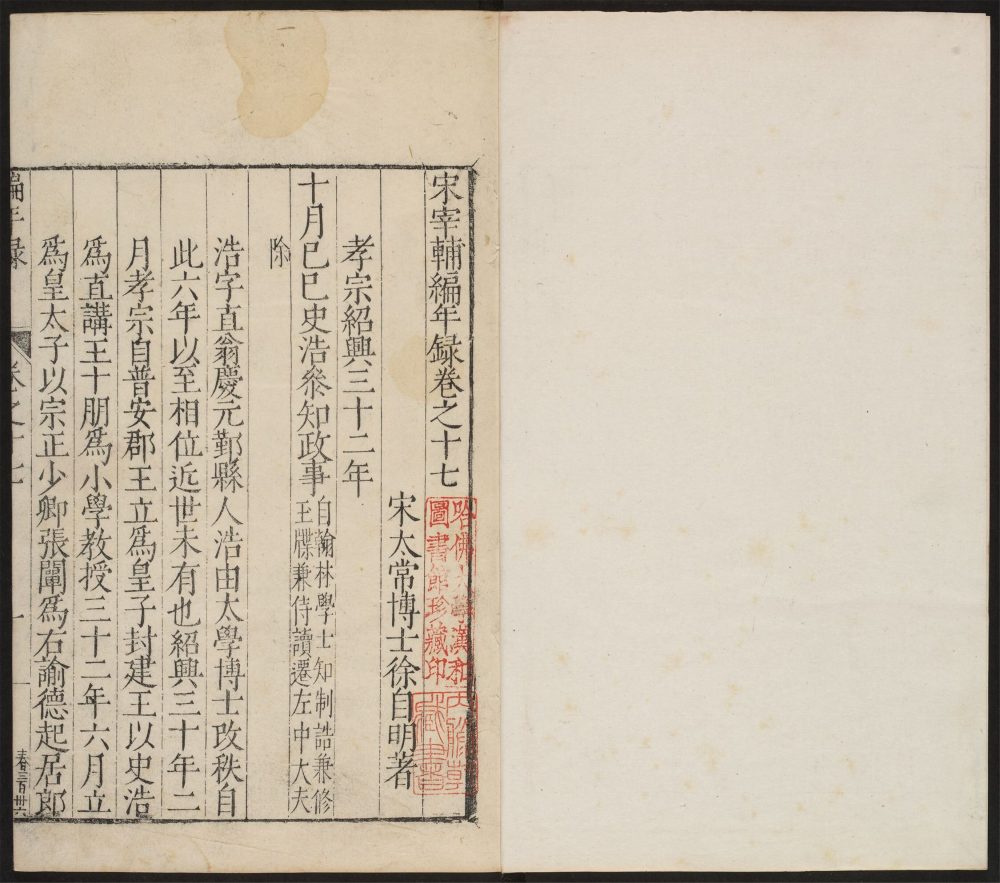 宋宰輔編年録卷之十七
宋太常博士徐自明著
孝宗紹興三十二年
十月己巳史浩叅知政事自翰林學士知制誥兼修
玉牒兼侍讀遷左中大夫
除
浩字直翁慶元鄞縣人浩由太學博士改秩自
此六年以至相位近世未有也紹興三十年二
月孝宗自普安郡王立爲皇子封建王以史浩
爲直講王十朋爲小學教授三十二年六月立
爲皇太子以宗正少卿張闡爲右諭德起居郎
編年録
卷之十七
一
春三百卅六
哈佛大學漢和
圖書館珍藏印